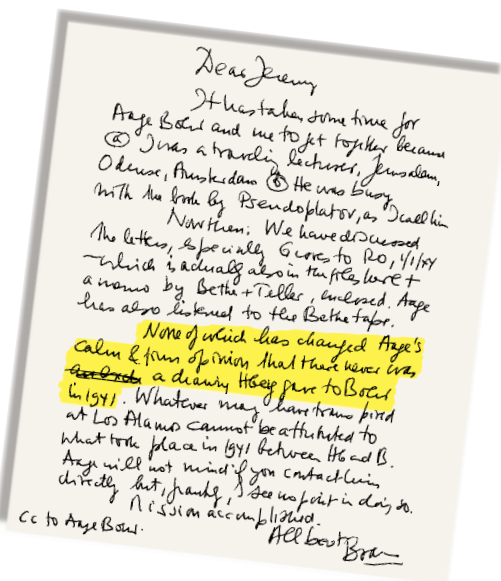 Dear Jeremy
It has taken some time for
Aage Bohr and me to get together because
ⓐ I was a traveling lecturer, Jerusalem,
Odense, Amsterdam ⓑ He was busy
with the book by Pseudoplator, as I call him
Now then: We have discussed
the letters, especially Groves to RO, 1/1/44
– which is actually also in the files here +
a memo by Bethe + Teller, enclosed. Aage
has also listened to the Bethe tape.
None of which has changed Aage's
calm & firm opinion that there never was
a drawing Hberg gave to Bohr
in 1941. Whatever may have transpired
at Los Alamos cannot be attributed to
what took place in 1941 between H and B.
Aage will not mind if you contact him
directly but, frankly, I see no point in doing so.
Mission accomplished.
All best
cc to Aage Bohr.